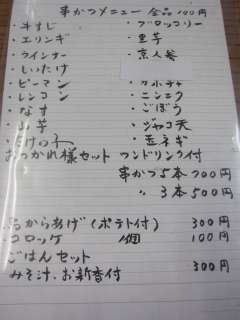 串かつメニュー 全品100円
・牛すじ
・エリンギ
・ウインナー
・しいたけ
・ピーマン
・レンコン
・なす
・山芋
・たけの子
・ブロッコリー
・里芋
・京人参
・カボチャ
・ニンニク
・ごぼう
・ジャコ天
・玉ネギ
おつかれ様セット ワンドリンク付
串かつ5本 700円
〃 3本 500円
鳥からあげ(ポテト付) 300円
コロッケ 1個 100円
ごはんセット
みそ汁、お新香付 300円